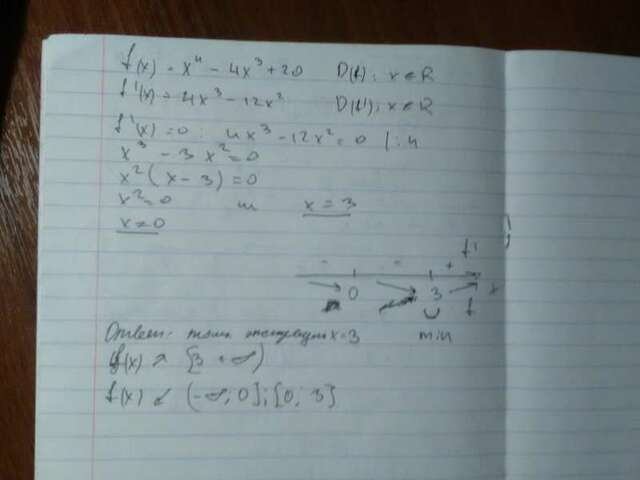 f(x) = x⁴ - 4x³ + 20 D(f): x ∈ R
f'(x) = 4x³ - 12x² D(f'): x ∈ R
f'(x) = 0 : 4x³ - 12x² = 0 | : 4
x³ - 3x² = 0
x²(x - 3) = 0
x² = 0 и x = 3
x = 0
- - + f'
0 3 f x
min
Ответ: точки экстремума x = 3
f(x) ↗ [3; +∞)
f(x) ↙ (-∞; 0]; [0; 3]